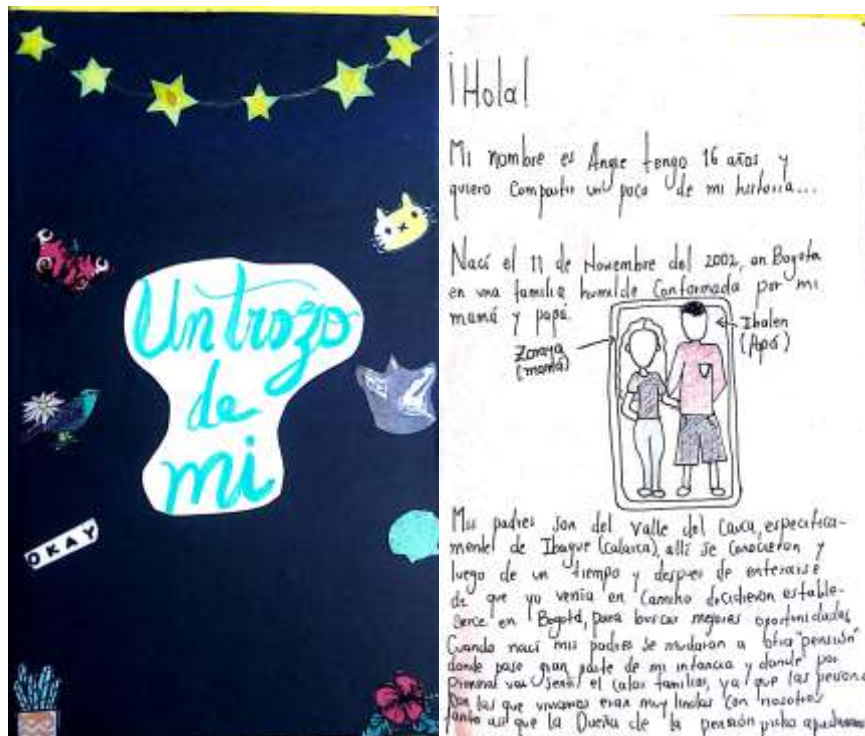 Un trozo
de
mi
OKAY
¡Hola!
Mi nombre es Angie tengo 16 años y
quiero compartir un poco de mi historia...
Nací el 11 de Noviembre del 2002, en Bogota
en una familia humilde conformada por mi
mamá y papá
Zoraya
(mamá)
(Apá)
Mis padres son del Valle del Cauca, especifica-
mente de Ibague (calarca), allí se conocieron y
luego de un tiempo y despues de enterarse
de que yo venia en camino decidieron estable-
cerce en Bogotá, para buscar mejores oportunidades
Cuando nací mis padres se mudaron a otra "pensión"
donde pase gran parte de mi infancia y donde por
vez sentí el calor familiar, ya que las
con las que viviamos eran muy lindas con nosotros
tanto asi que la Dueña de la pensión